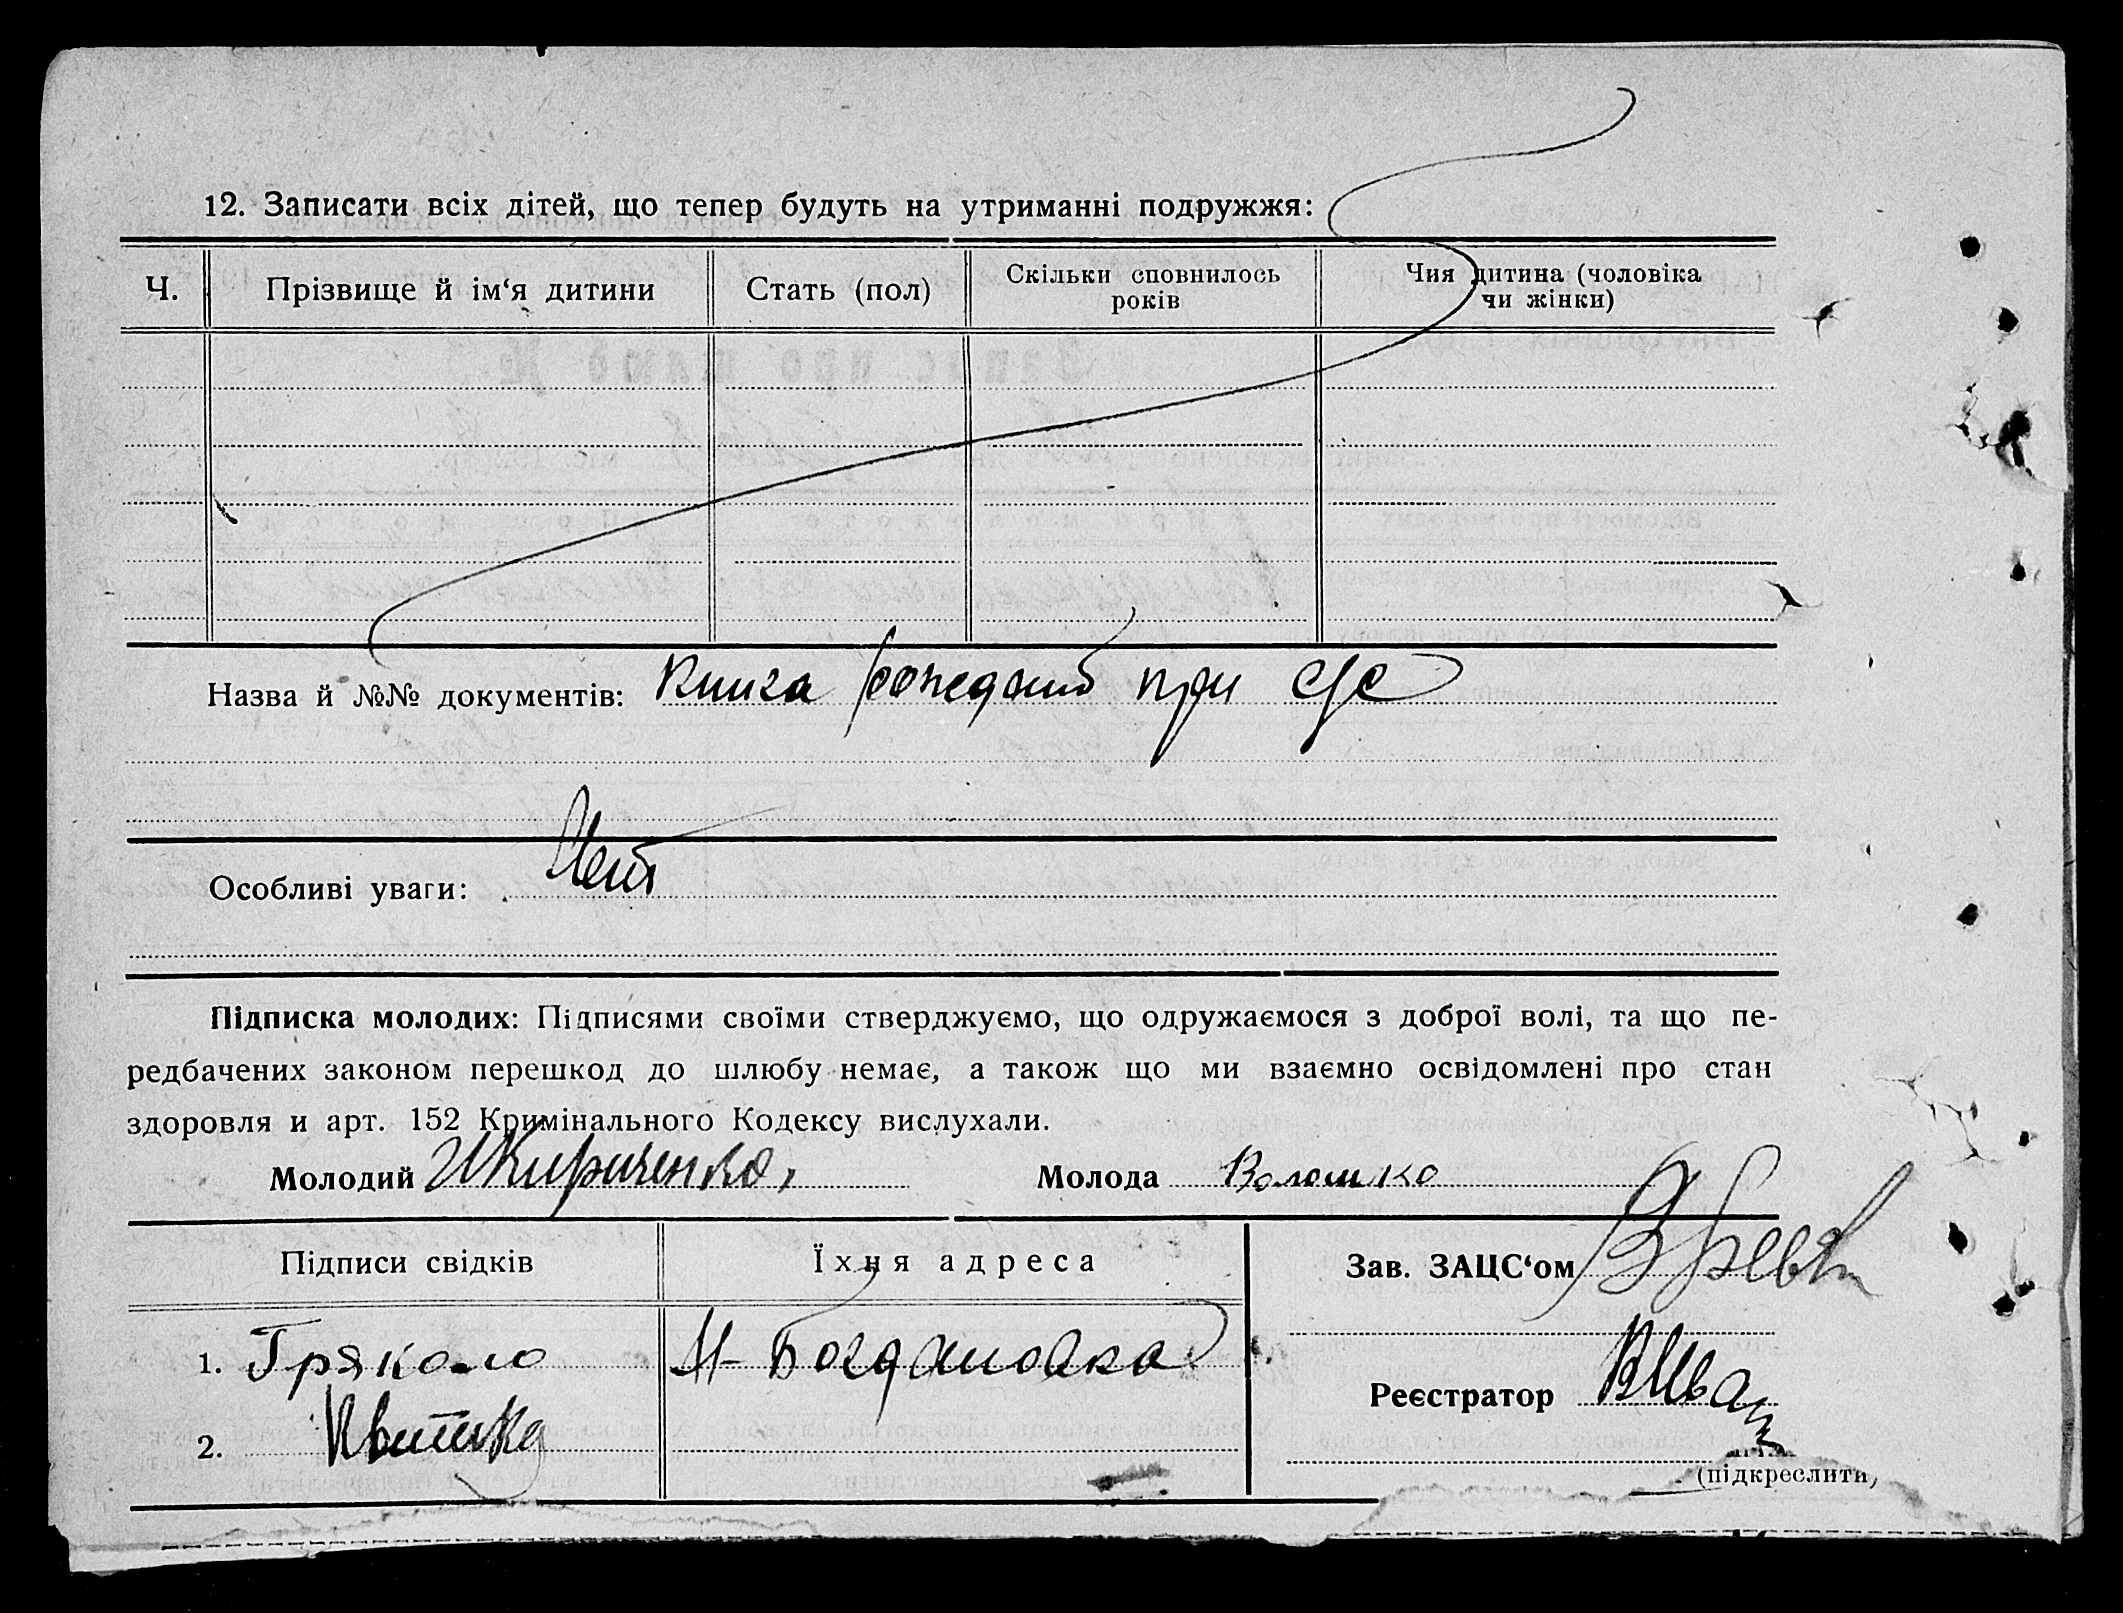 12. Записати всіх дітей, що тепер будуть на утриманні подружжя:
Ч. Прізвище й ім‘я дитини Стать (пол) Скільки сповнилось років Чия дитина (чоловіка чи жінки)
Назва й №№ документів: Книга рождений при с/с
Особливі уваги: Нет
Підписка молодих: Підписями своїми стверджуємо, що одружаємося з доброї волі, та що пе-
редбачених законом перешкод до шлюбу немає, а також що ми взаємно освідомлені про стан
здоровля и арт. 152 Кримінального Кодексу вислухали.
Молодий ИКириченко Молода Волошко
Підписи свідків Їхня адреса Зав. ЗАЦС‘ом
1. Гряколо М-Богдановка
Реєстратор
2. Квитка
(підкреслити)